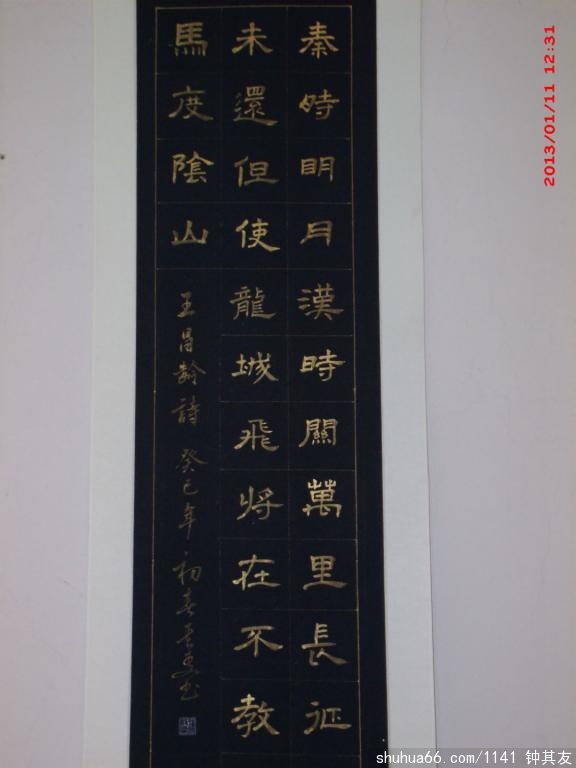 秦時明月漢時關萬里長征
未還但使龍城飛将在不教
馬度陰山
王昌齡詩 癸巳年初春其友书
2013/01/11 12:31
shuhua66.com/1141 钟其友